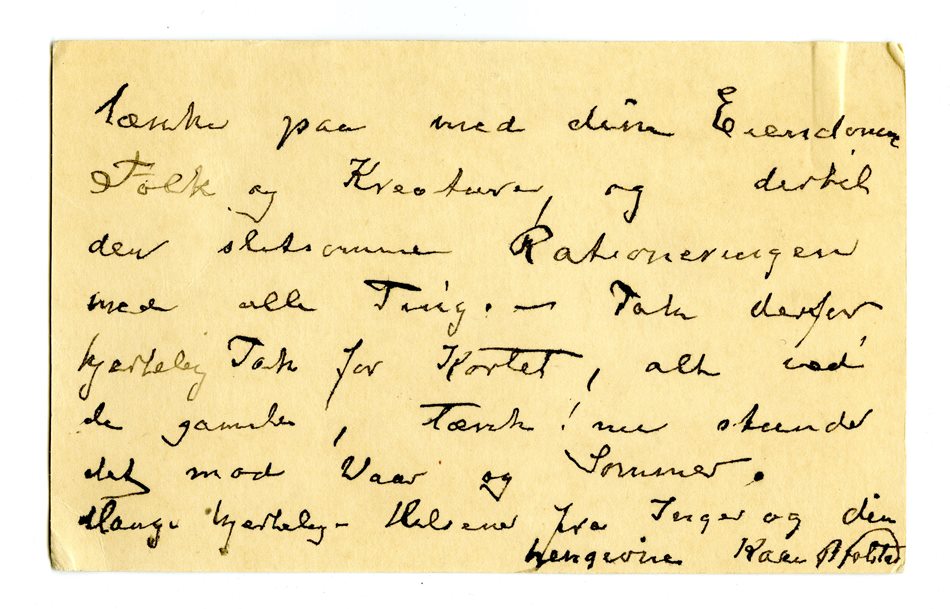 tænke paa med dine Eiendomme
Folk og Kreaturer, og dertil
den slitsomme Rationeringen
med alle Ting. – Tak derfor
hjertelig Tak for Kortet, alt ved
de gamle, tænk! nu stunder
det mod Vaar og Sommer.
Mange hjertelige Hilsener fra Inger og din
hengivne Kaare